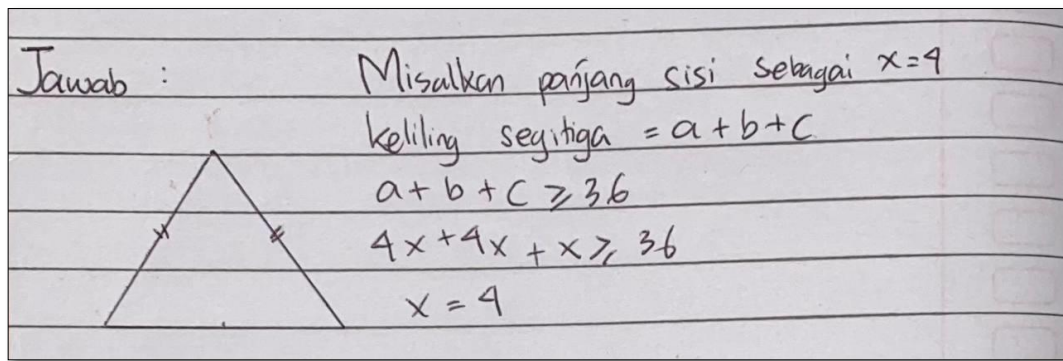 Jawab : Misalkan panjang sisi sebagai x=4
keliling segitiga = a+b+c
a+b+c ⩾ 36
4x+4x+x ⩾ 36
x = 4